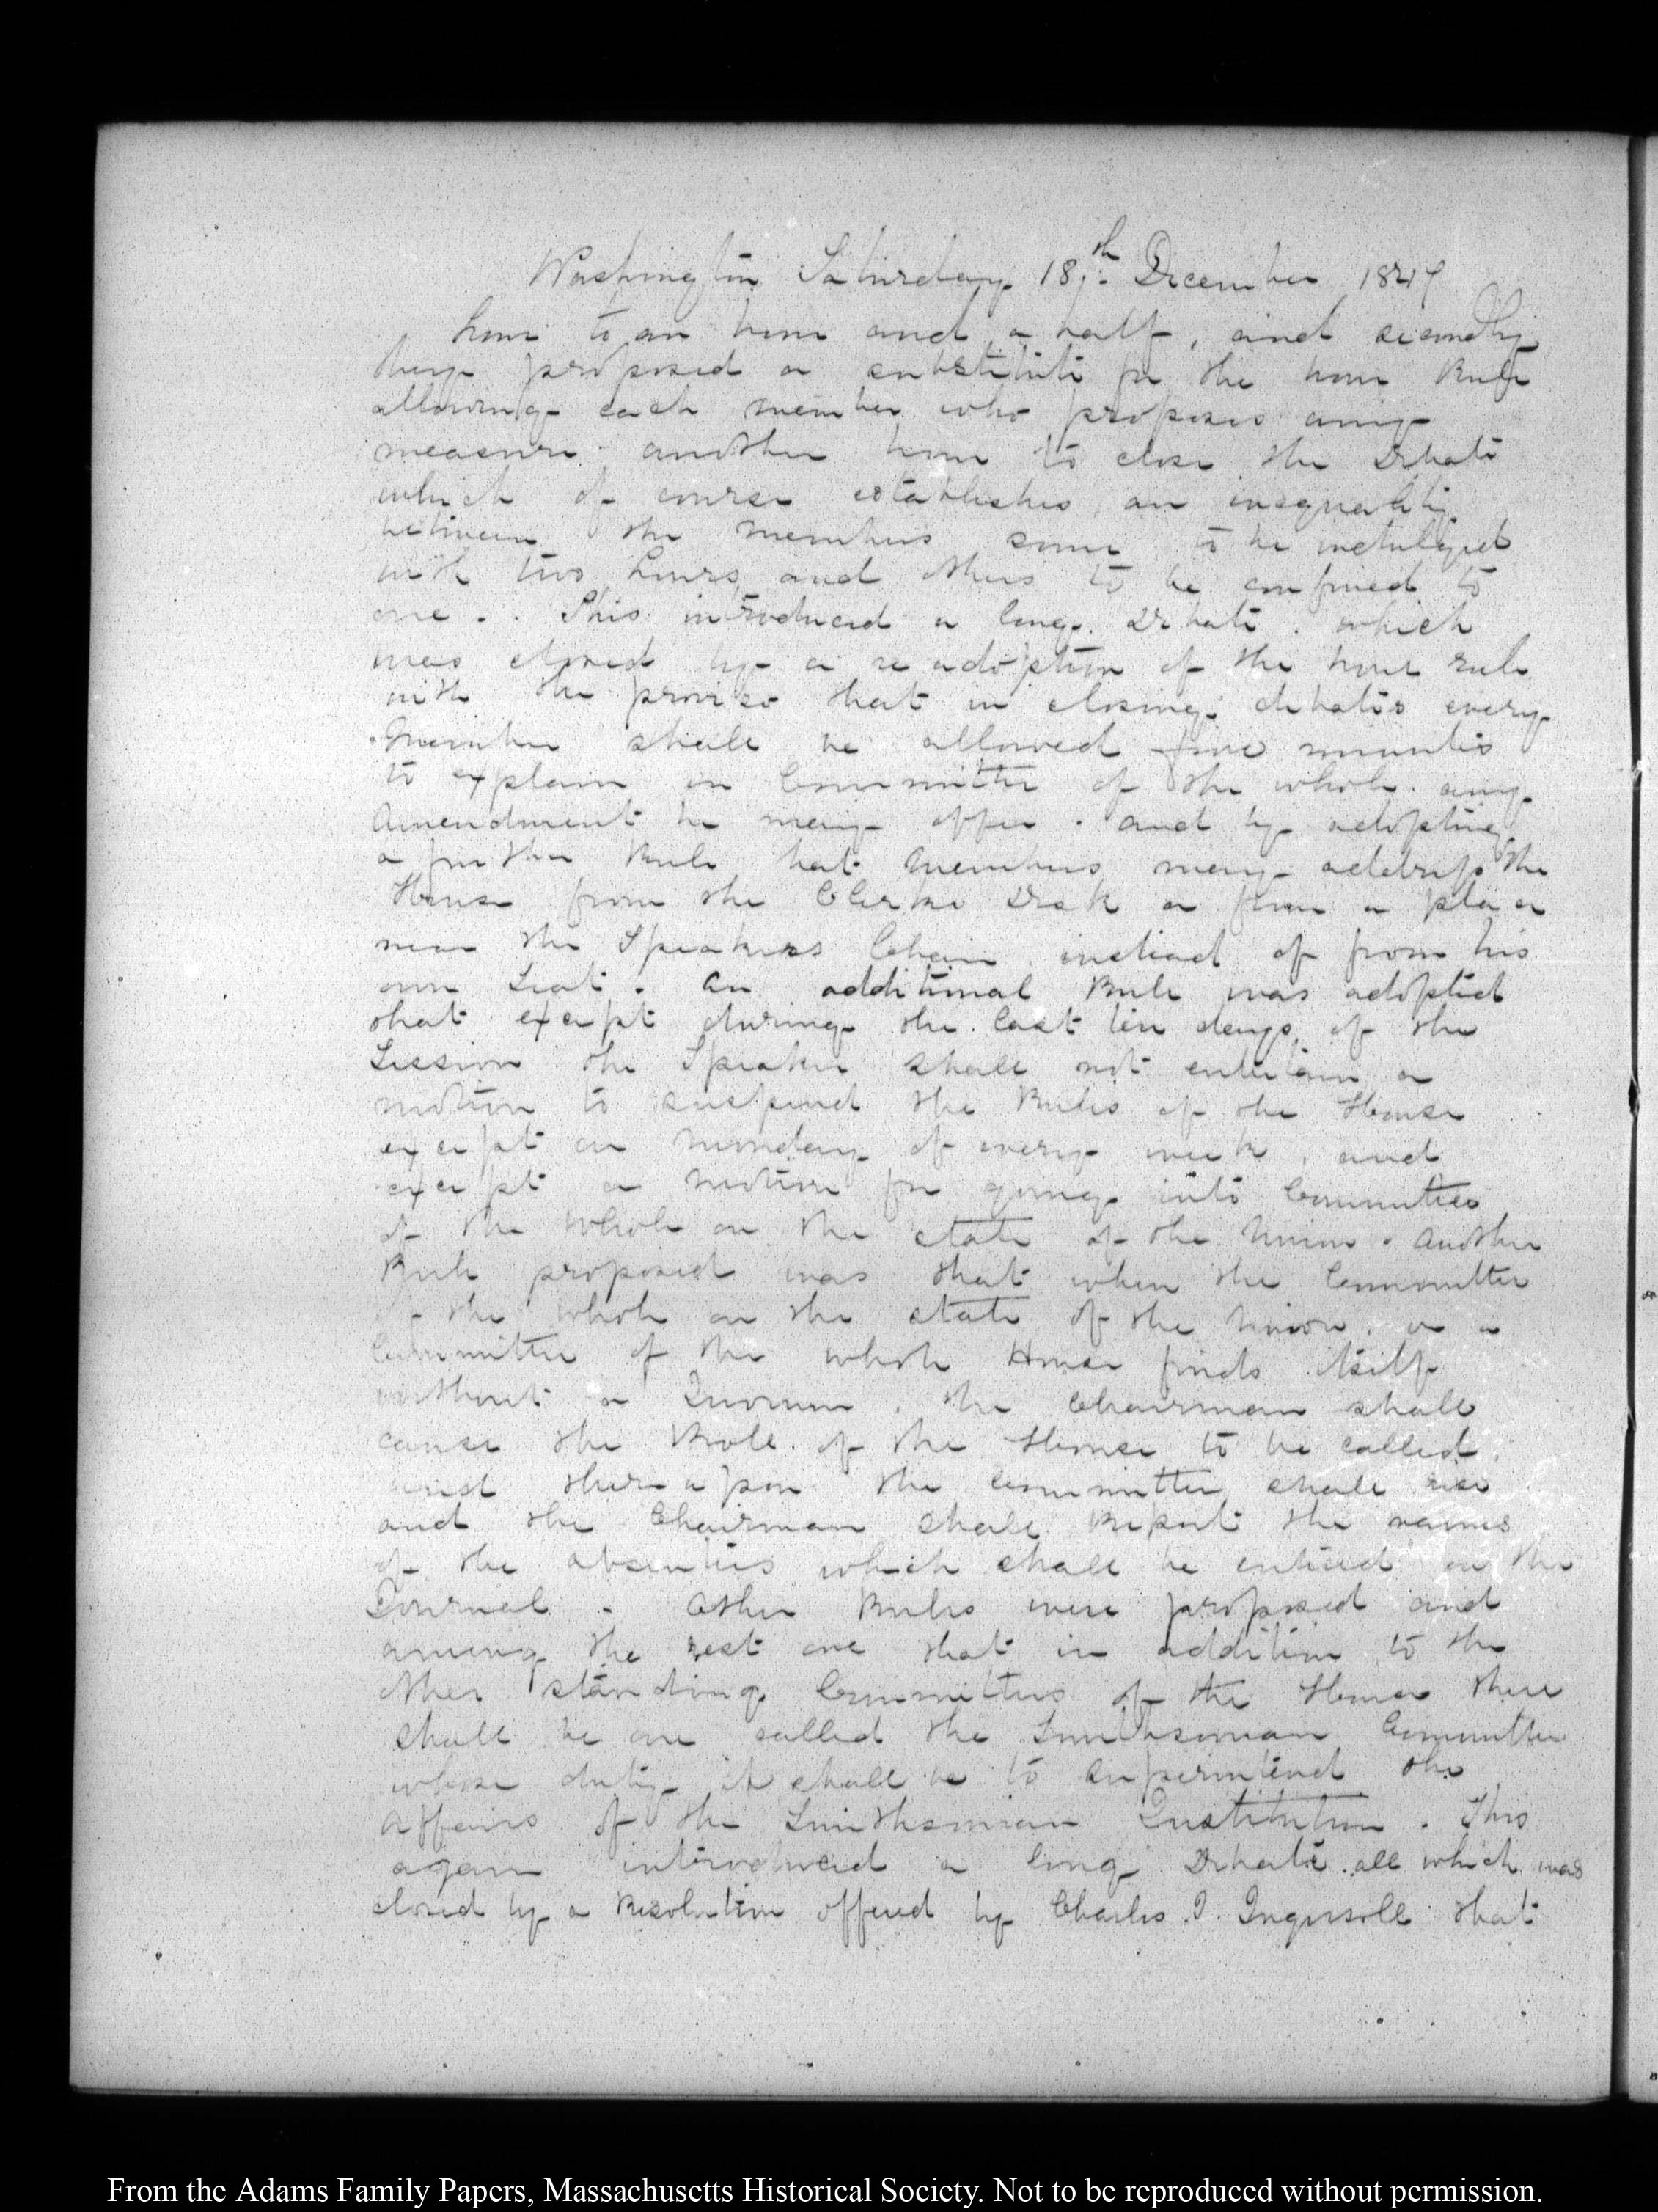 Washington Saturday 18th December 1847
hour to an hour and a half, and secondly
they proposed a substitute for the hour Rule
allowing each member who proposes any
measure another hour to close the Debate
which of course establishes an inequality
between the members some to be indulged
with two hours and others to be confined to
one. This introduced a long Debate. which
was closed by a re adoption of the hour rule
with the proviso that in closing debates every
Member shall be allowed five minutes
to explain in Committee of the whole any
Amendment he may offer. and by adopting
a further Rule that Members may address the
House from the Clerks Desk or from a place
near the Speakers Chair instead of from his
own Seat. An additional Rule was adopted
that except during the last ten days of the
Session the Speaker shall not entertain a
motion to suspend the Rules of the House
except on Monday of every week, and
except a motion for going into Committee
of the Whole on the state of the Union. Another
Rule proposed was that when the Committee
of the whole on the state of the Union. or a
Committee of the whole House finds itself
without a Quorum, the Chairman shall
cause the Role of the House to be called,
and thereupon the Committee shall rise
and the Chairman shall Report the names
of the absentees which shall be entered on the
Journal. Other Rules were proposed and
among the rest one that in addition to the
other standing Committees of the House there
shall be one called the Smithsonian Committee
whose duty it shall be to superintend the
affairs of the Smithsonian Institution. This
again introduced a long Debate. all which was
closed by a Resolution offered by Charles J. Ingersoll that
From the Adams Family Papers, Massachusetts Historical Society. Not to be reproduced without permission.